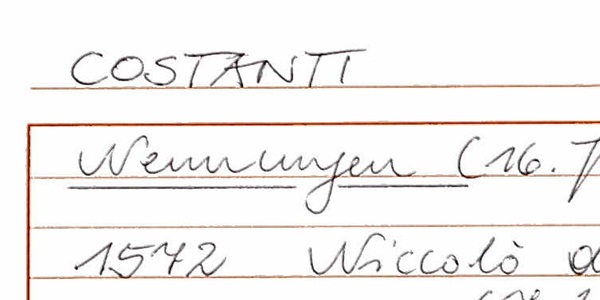 COSTANTI
Nennungen (16.
1572 Niccolò